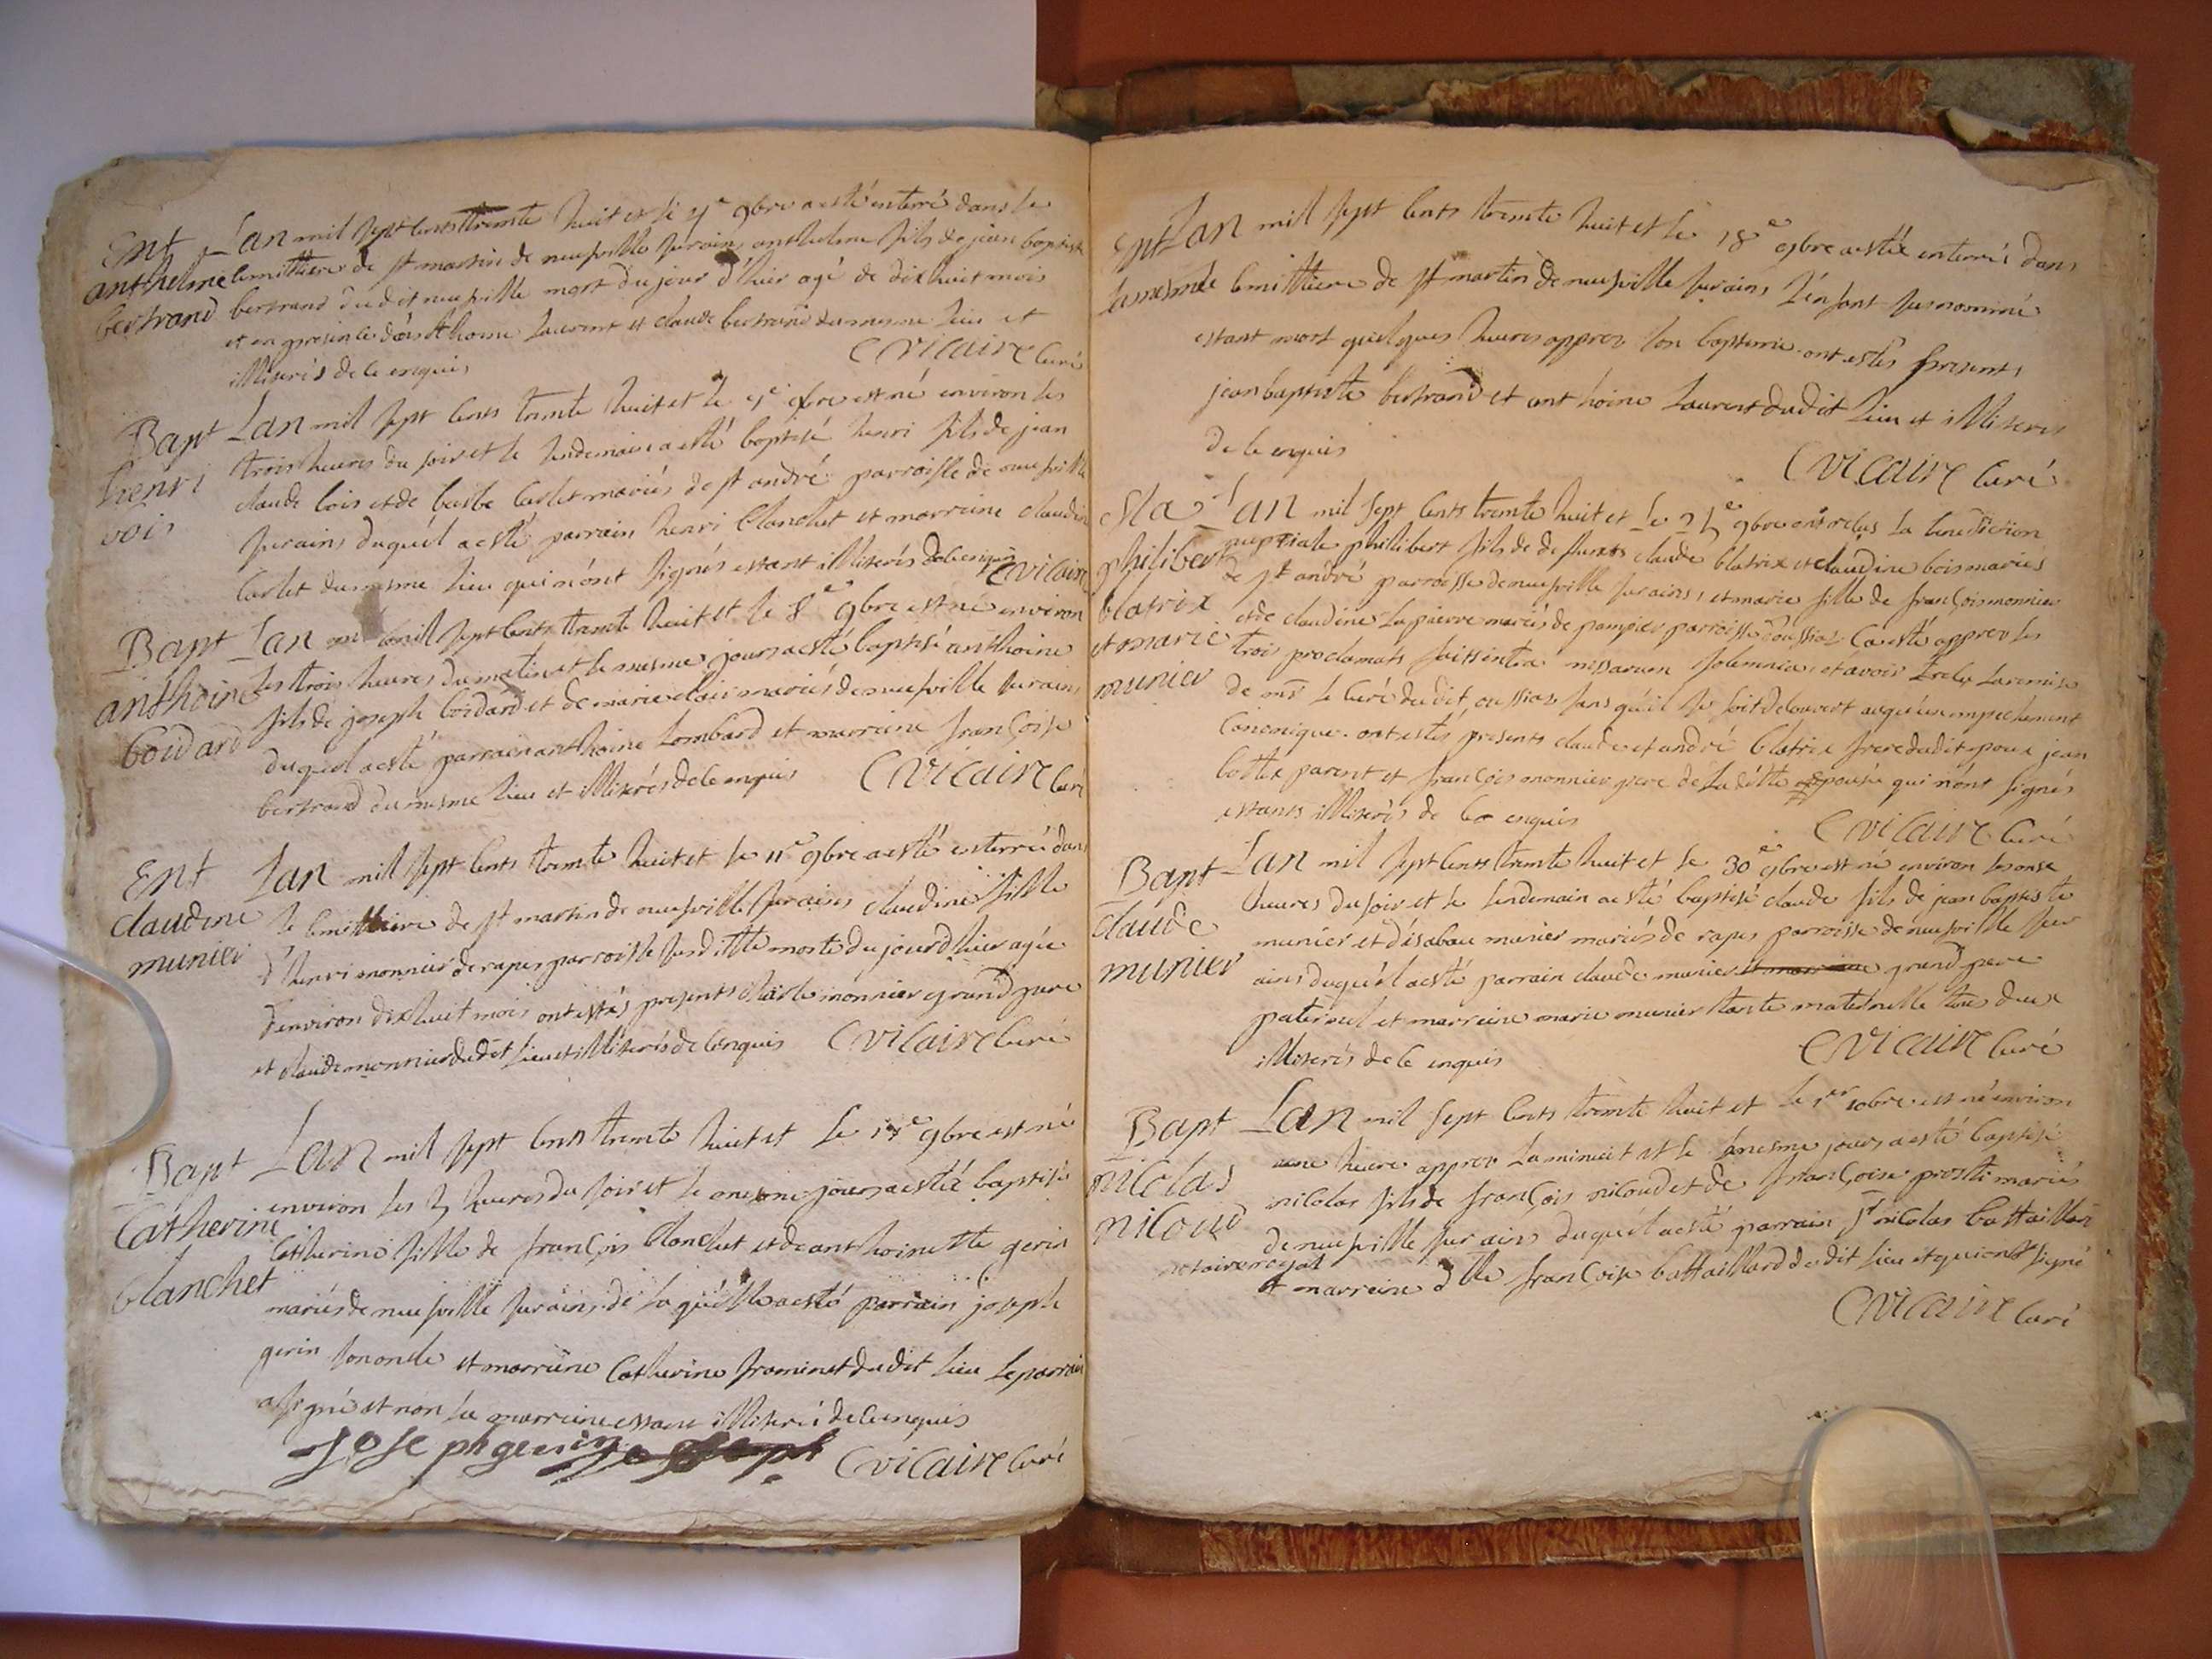 Ent Lan mil sept cents trente huit et le 4e 9bre a esté enterré dans le
anthelme cemittiere de st martin de neufville surains anthelme fils de jean baptiste
bertrand bertrand dudit neufville mort du jour d'hier agé de dix huit mois
et en presence d'anthoine Laurent et claude bertrand du mesme lieu et
illiterés de ce enquis CVicaire curé
Bapt Lan mil sept cents trente huit et le 9bre est né environ les
henri trois heures du soir et le lendemain a esté baptisé henri fils de jean
bois claude bois et de Carlet mariés de st andré parroisse de neufville
surains duquel a esté parrain henri blanchet et marraine claudine
Carlet du mesme lieu qui n'ont signés estant illiterés de ce enquis CVicaire
Bapt Lan mil sept cents trente huit et le 8e 9bre est né environ
anthoine les trois heures du matin et le mesme jour a esté baptisé anthoine
boidard fils de joseph boidard et de marie mariés de neufville surains
duquel a esté parrain anthoine Lombard et marraine françoise
bertrand du mesme lieu et illiterés de ce enquis CVicaire Curé
Ent Lan mil sept cents trente huit et le 11e 9bre a esté enterré dans
claudine le cemittiere de st martin de neufville surains claudine fille
munier d'henri monnier de rapes parroisse susditte morte du jour d'hier agée
d'environ dix huit mois ont estés presents monnier grand pere
et claude monnier dudit lieu et illiterés de ce enquis CVicaire Curé
Bapt Lan mil sept cents trente huit et le 17e 9bre est né
environ les heures du soir et le mesme jour a estée baptisée
Catherine Catherine fille de françois blanchet et de anthoinette gerin
blanchet mariés de neufville surains de laquelle a esté parrain joseph
gerin son oncle et marraine Catherine frominet dudit lieu le parrain
a signé et non la marraine estant illiterée de ce enquis
Joseph gerin CVicaire Curé
Ent Lan mil sept cents trente huit et le 18e 9bre a estée enterré dans
le mesme cemittiere de st martin de neufville surains l'enfant susnommé
estant mort quelques heures appres son baptesme ont estés presents
jean baptiste bertrand et anthoine Laurent dudit lieu et illiterés
de ce enquis
CVicaire Curé
Lan mil sept cents trente huit et le 9bre ont reçus la benediction
philibert nuptiale philibert fils de defunts claude blatrix et claudine bois mariés
blatrix de st andré parroisse de neufville surains, et marie fille de françois monnier
et marie et de claudine Lapierre mariés de parroisse d'oussiat ce a esté appres les
munier trois proclamats faits intra missarum solemnia, et avoir receu la remise
de mr le Curé dudit oussiat sans qu'il se soit decouvert aucun empechement
canonique. ont estés presents claude et andré blatrix frere dudit epoux jean
parent et françois monnier pere de laditte epouse qui n'ont signés
estants illiterés de ce enquis CVicaire Curé
Bapt Lan mil sept cents trente huit et le 30e 9bre est né environ les onse
claude heures du soir et le lendemain a esté baptisé claude fils de jean baptiste
munier munier et d'isabau munier mariés de rapes parroisse de neufville sur
ains duquel a esté parrain claude munier grand pere
paternel et marraine marie munier tante maternelle tous deux
illiterés de ce enquis CVicaire Curé
Bapt Lan mil sept cents trente huit et le 1er 10bre est né environ
une heure appres la minuit et le mesme jour a esté baptisé
nicolas nicolas fils de françois niloud et de françoise mariés
niloud de neufville sur ains duquel a esté parrain sr nicolas battaillard
notaire royal
et marraine dlle françoise battaillard dudit lieu et qui ont signé
CVicaire Curé